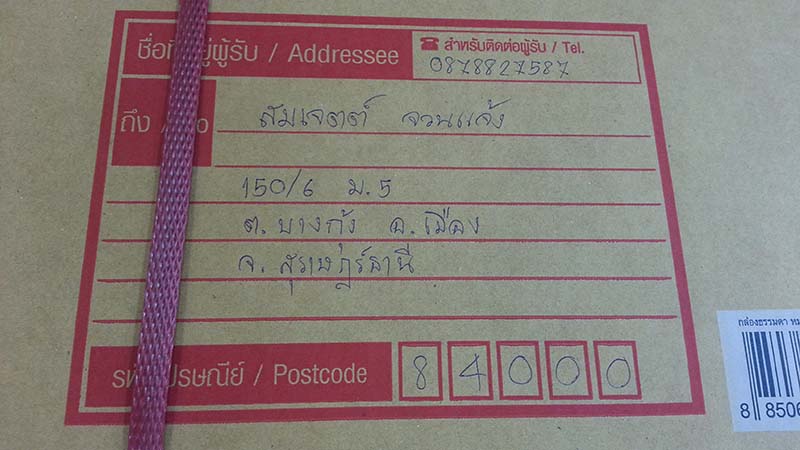 ชื่อที่อยู่ผู้รับ / Addressee
☎ สำหรับติดต่อผู้รับ / Tel.
0878827587
ถึง / To
สมเจตต์ จวนแจ้ง
150/6 ม.5
ต.บางกุ้ง อ.เมือง
จ.สุราษฎร์ธานี
รหัสไปรษณีย์ / Postcode
84000
กล่องธรรมดา
8 8506